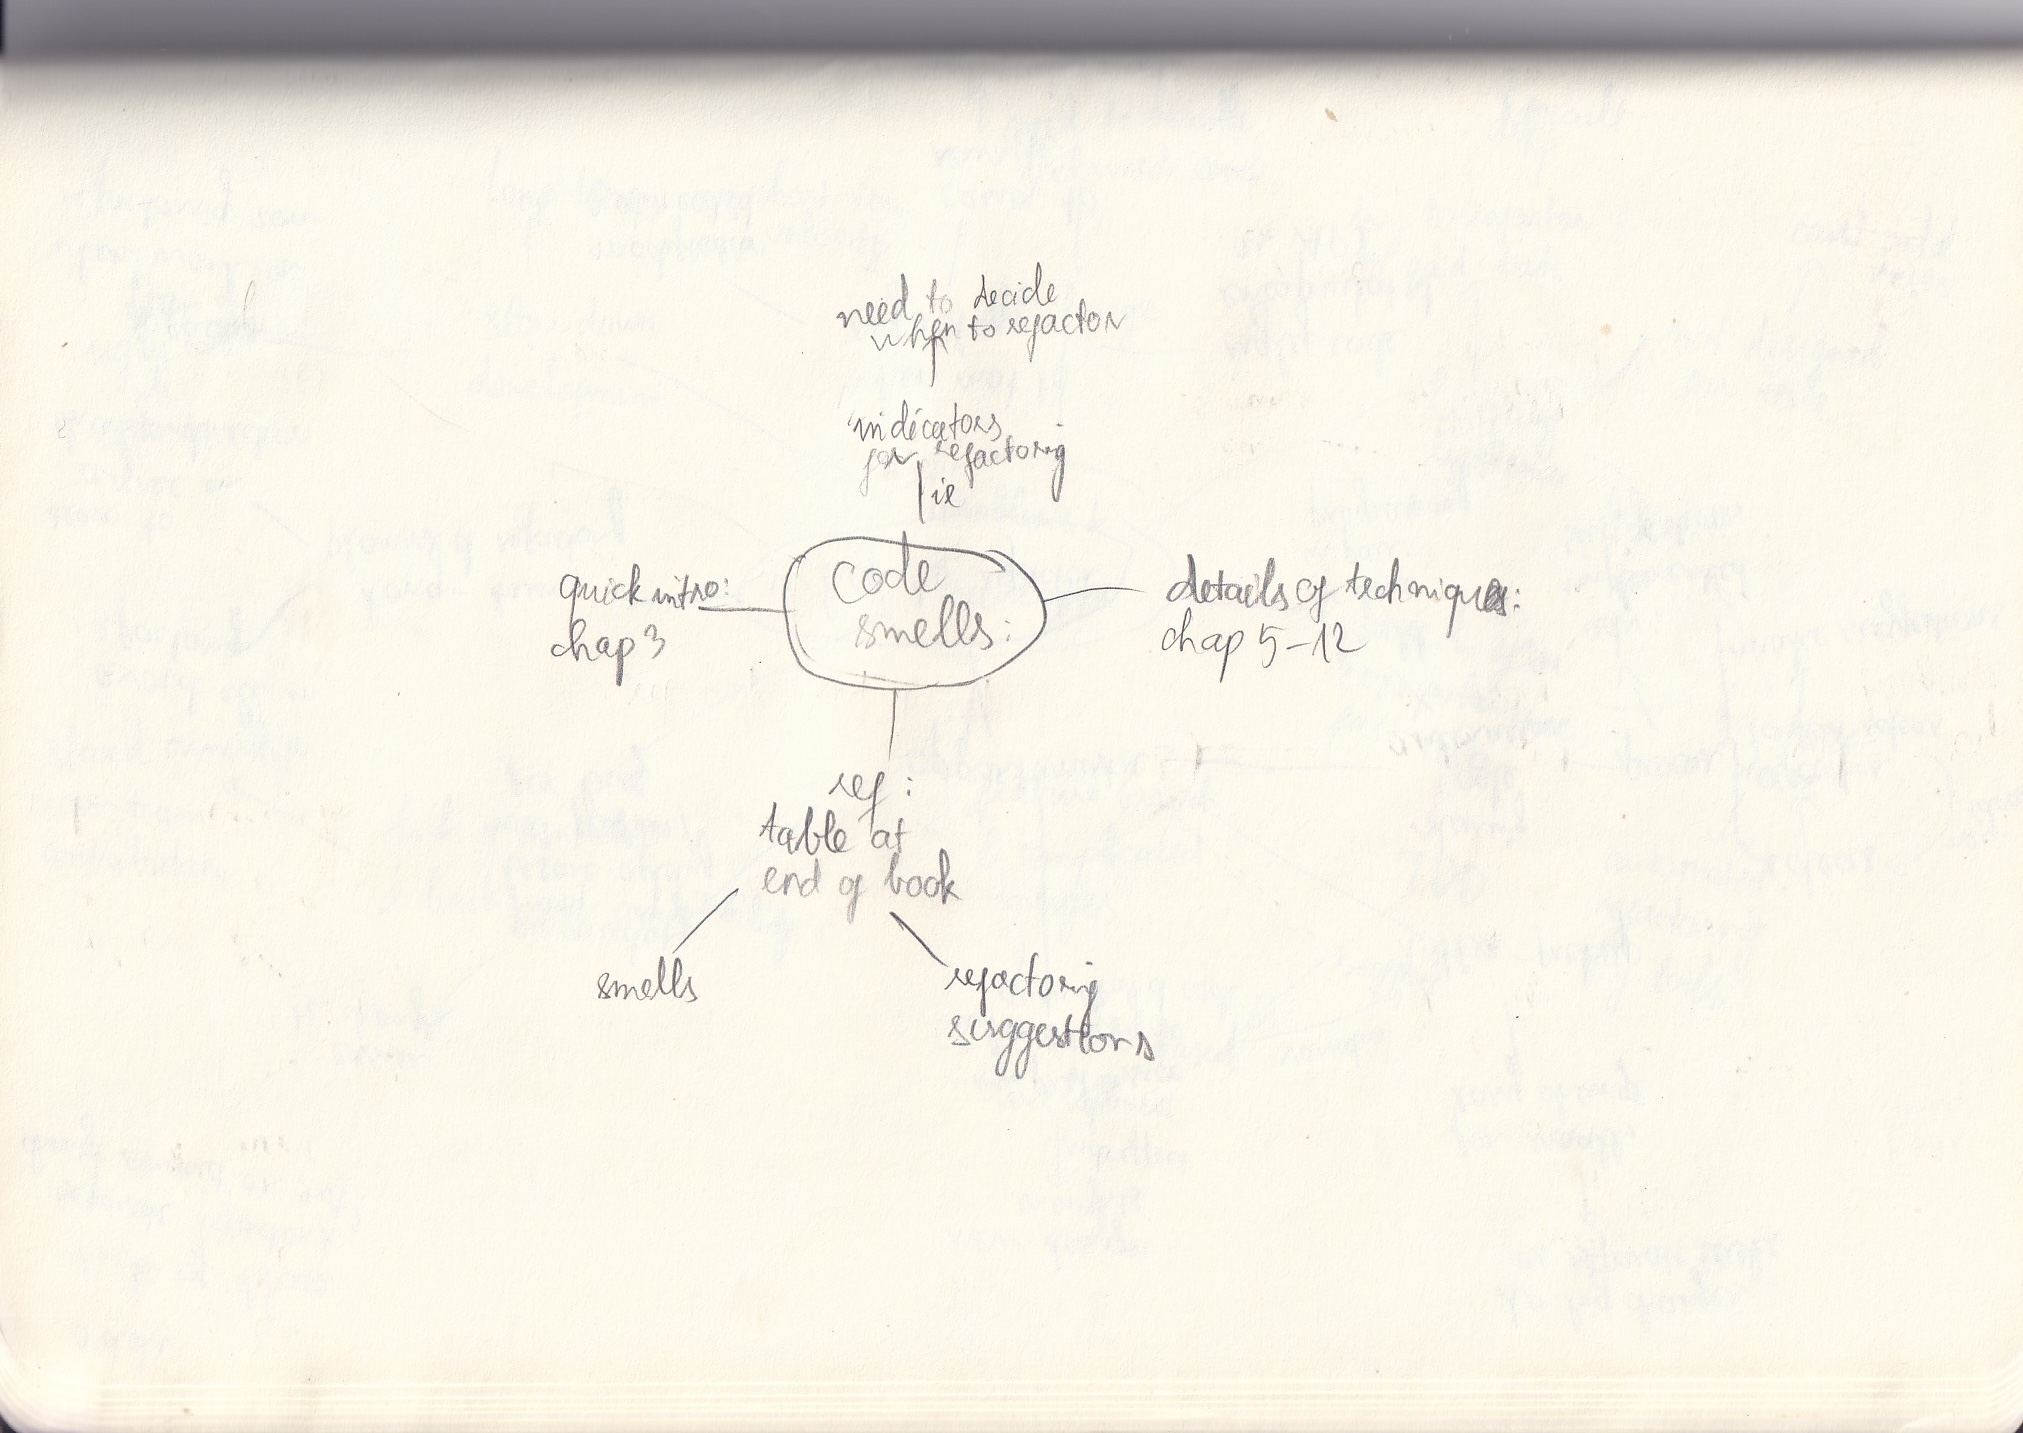 need to decide
when to refactor
indicators
for refactoring
ie
code
smells:
quick intro:
chap 3
details of techniques:
chap 5-12
ref:
table at
end of book
smells
refactoring
suggestions